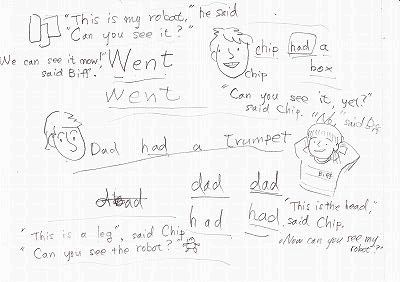 "This is my robot," he said
"Can you see it?"
We can see it now!"
said Biff.
Went
went
chip had a
box
Chip
"Can you see it, yet?"
said Chip. "No," said Biff
Dad had a trumpet
Biff
dad dad
had had
"This is the head,"
said Chip.
"Now can you see my
robot?"
"This is a leg", said Chip
"Can you see the robot?"